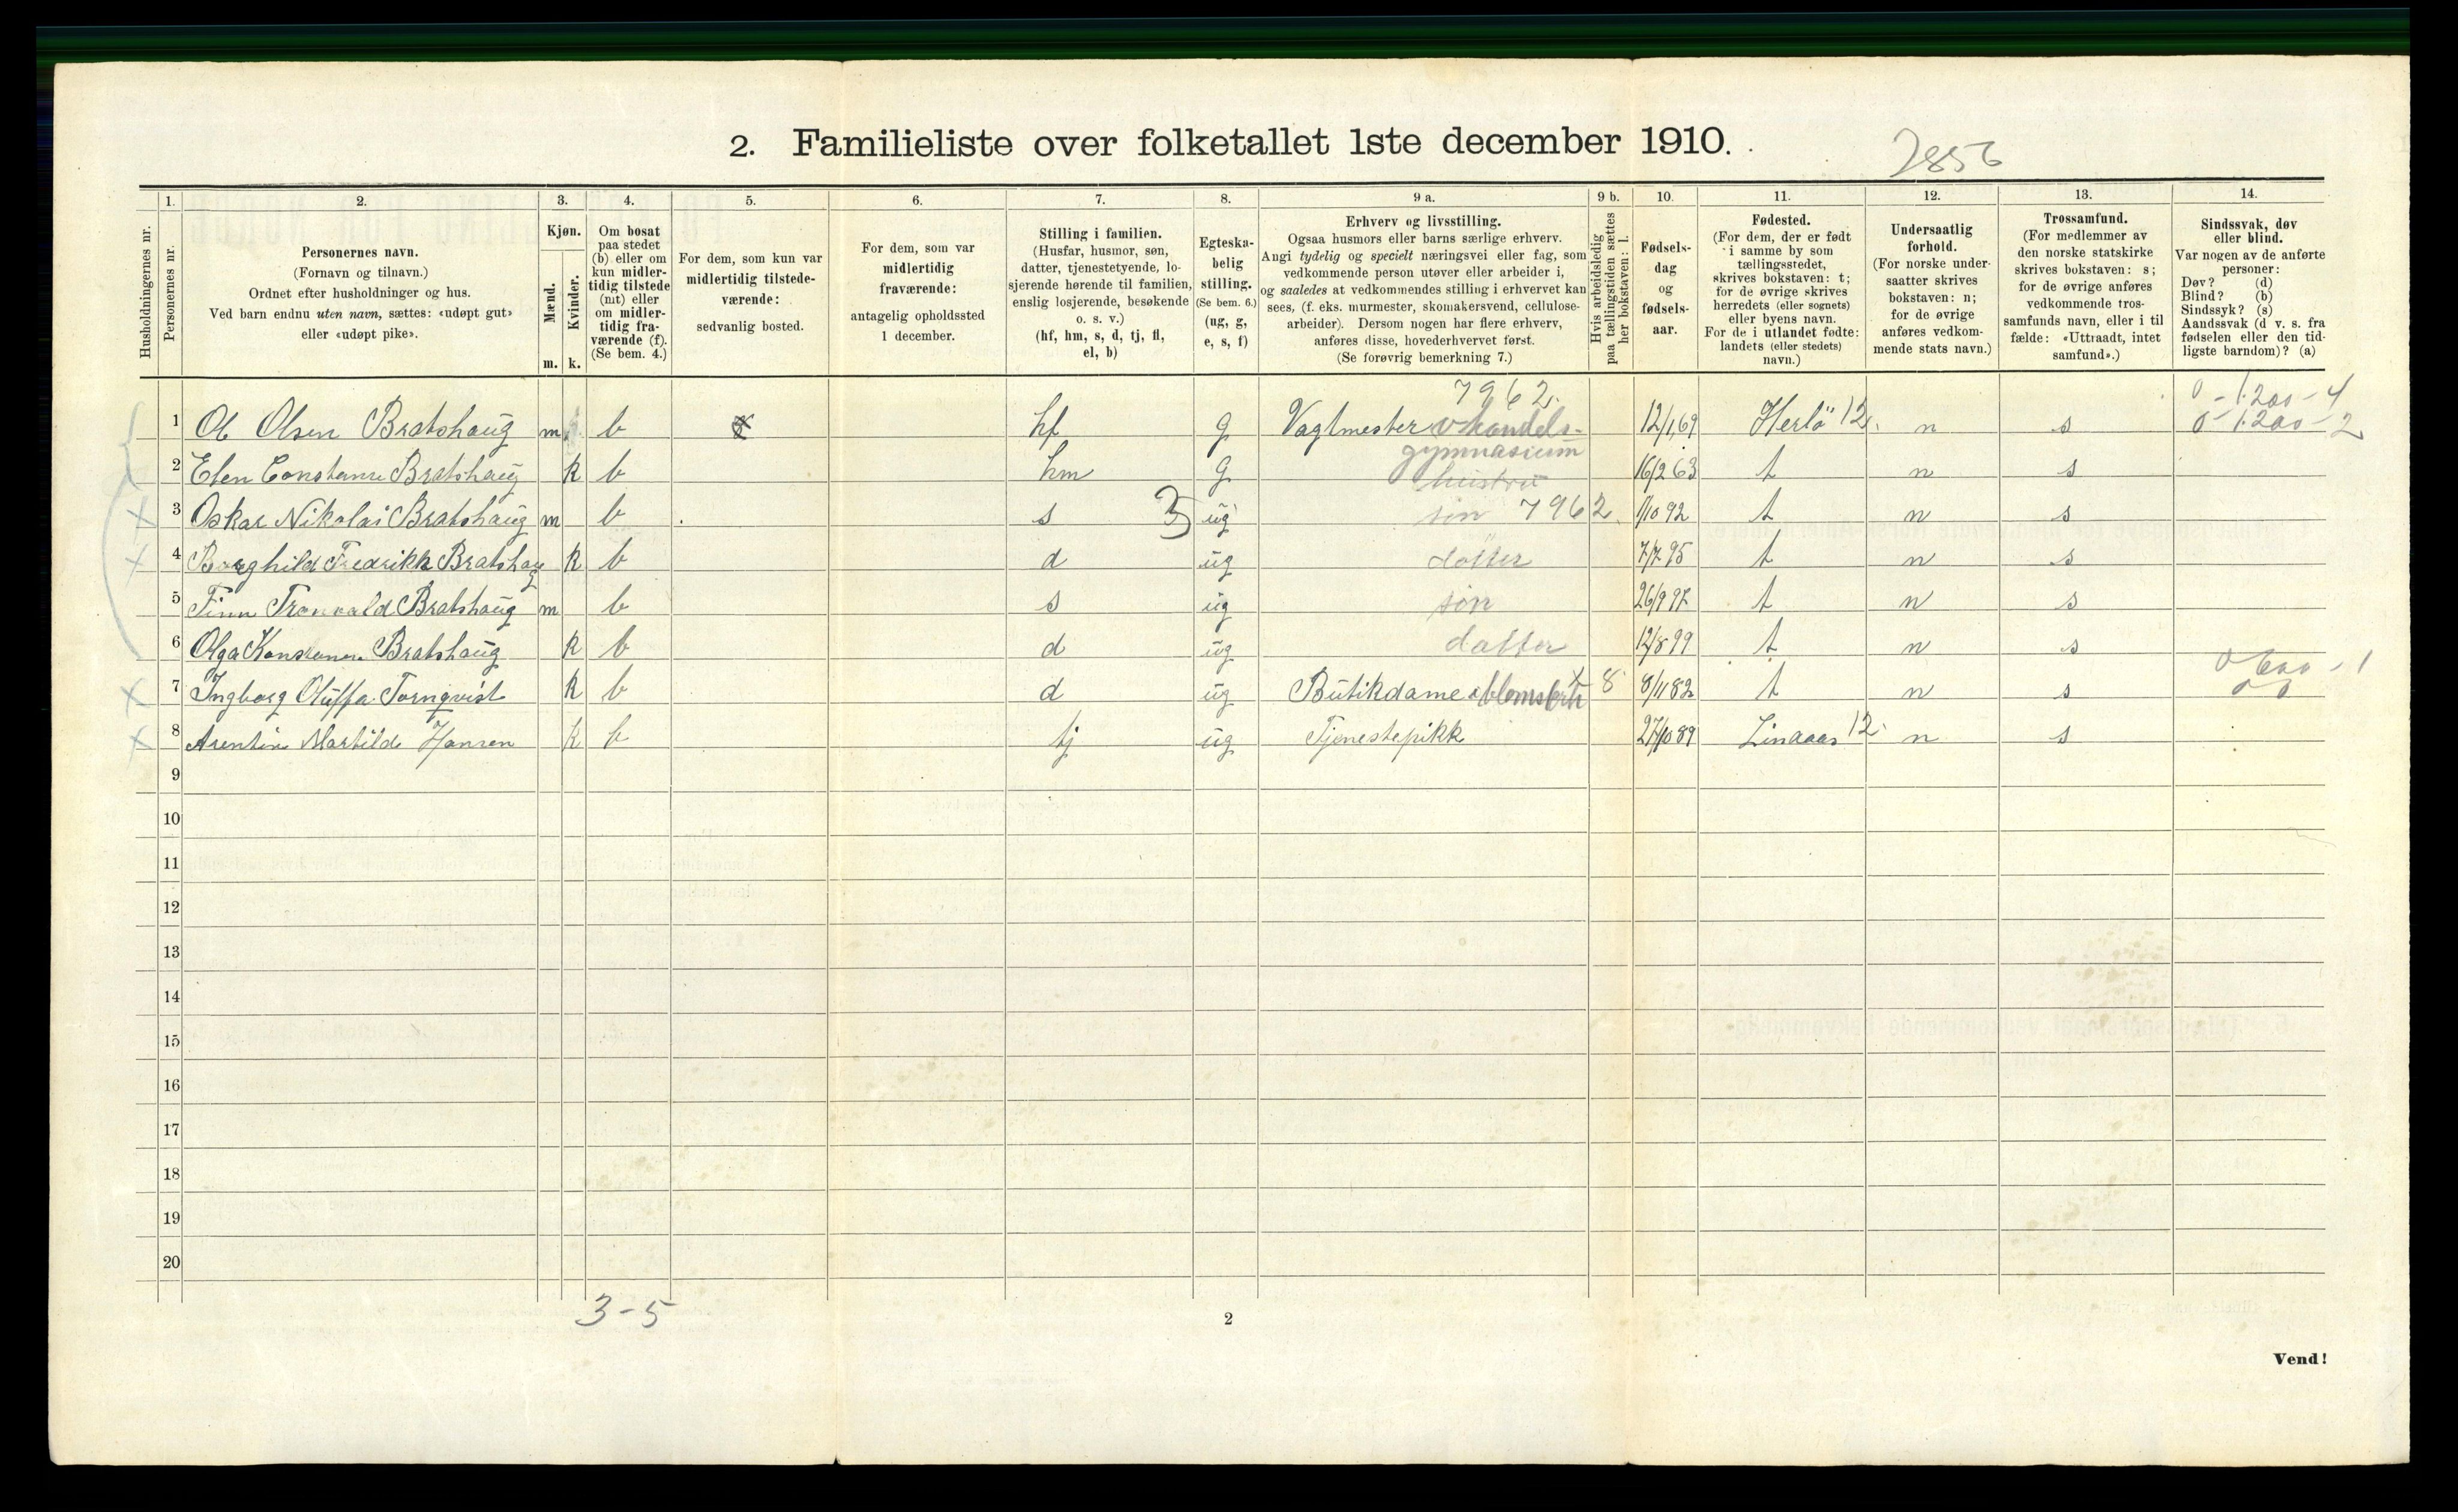 2. Familieliste over folketallet 1ste december 1910.
2856
1. 2. 3. 4. 5. 6. 7. 8. 9 a. 9 b. 10. 11. 12. 13. 14.
Husholdningernes nr.
Personernes nr.
Personernes navn.
(Fornavn og tilnavn.)
Ordnet efter husholdninger og hus.
Ved barn endnu uten navn, sættes: «udøpt gut»
eller «udøpt pike».
Kjøn.
Mænd.
m.
Kvinder.
k.
Om bosat
paa stedet
(b) eller om
kun midler-
tidig tilstede
(mt) eller
om midler-
tidig fra-
værende (f).
(Se bem. 4.)
For dem, som kun var
midlertidig tilstede-
værende:
sedvanlig bosted.
For dem, som var
midlertidig
fraværende:
antagelig opholdssted
1 december.
Stilling i familien.
(Husfar, husmor, søn,
datter, tjenestetyende, lo-
sjerende hørende til familien,
enslig losjerende, besøkende
o. s. v.)
(hf, hm, s, d, tj, fl,
el, b)
Egteska-
belig
stilling.
(Se bem. 6.)
(ug, g,
e, s, f)
Erhverv og livsstilling.
Ogsaa husmors eller barns særlige erhverv.
Angi tydelig og specielt næringsvei eller fag, som
vedkommende person utøver eller arbeider i,
og saaledes at vedkommendes stilling i erhvervet kan
sees, (f. eks. murmester, skomakersvend, cellulose-
arbeider). Dersom nogen har flere erhverv,
anføres disse, hovederhvervet først.
(Se forøvrig bemerkning 7.)
Hvis arbeidsledig
paa tællingstiden sættes
her bokstaven: l.
Fødsels-
dag
og
fødsels-
aar.
Fødested.
(For dem, der er født
i samme by som
tællingsstedet,
skrives bokstaven: t;
for de øvrige skrives
herredets (eller sognets)
eller byens navn.
For de i utlandet fødte:
landets (eller stedets)
navn.)
Undersaatlig
forhold.
(For norske under-
saatter skrives
bokstaven: n;
for de øvrige
anføres vedkom-
mende stats navn.)
Trossamfund.
(For medlemmer av
den norske statskirke
skrives bokstaven: s;
for de øvrige anføres
vedkommende tros-
samfunds navn, eller i til
fælde: «Uttraadt, intet
samfund».)
Sindssvak, døv
eller blind.
Var nogen av de anførte
personer:
Døv? (d)
Blind? (b)
Sindssyk? (s)
Aandssvak (d v. s. fra
fødselen eller den tid-
ligste barndom)? (a)
7962. 0 - 1200 - 4
1 Ol Olsen Bratshaug m. b hf g Vagtmester v handels- 12/1 69 Herlö 12. n s 0 - 1200 - 2
gymnasium
2 Elen Constanse Bratshaug k b hm g hustru 16/2 63 t n s
3 Oskar Nikolai Bratshaug m b s 3 ug søn 7962. 1/10 92 t n s
4 Borghild Fredrikk Bratshaug k b d ug datter 7/7 95 t n s
5 Finn Tronvald Bratshaug m b s ug søn 26/9 97 t n s
6 Olga Konstanse Bratshaug k b d ug datter 12/8 99 t n s
7 Ingborg Oluffa Tornqvist k b d ug Butikdame 8 8/11 82 t n s 0 600 - 1
8 Arentine Martilde Hansen k b tj ug Tjenestepikk 27/10 89 Lindaas 12. n s
9
10
11
12
13
14
15
16
17
18
19
20
3-5
2
Vend!